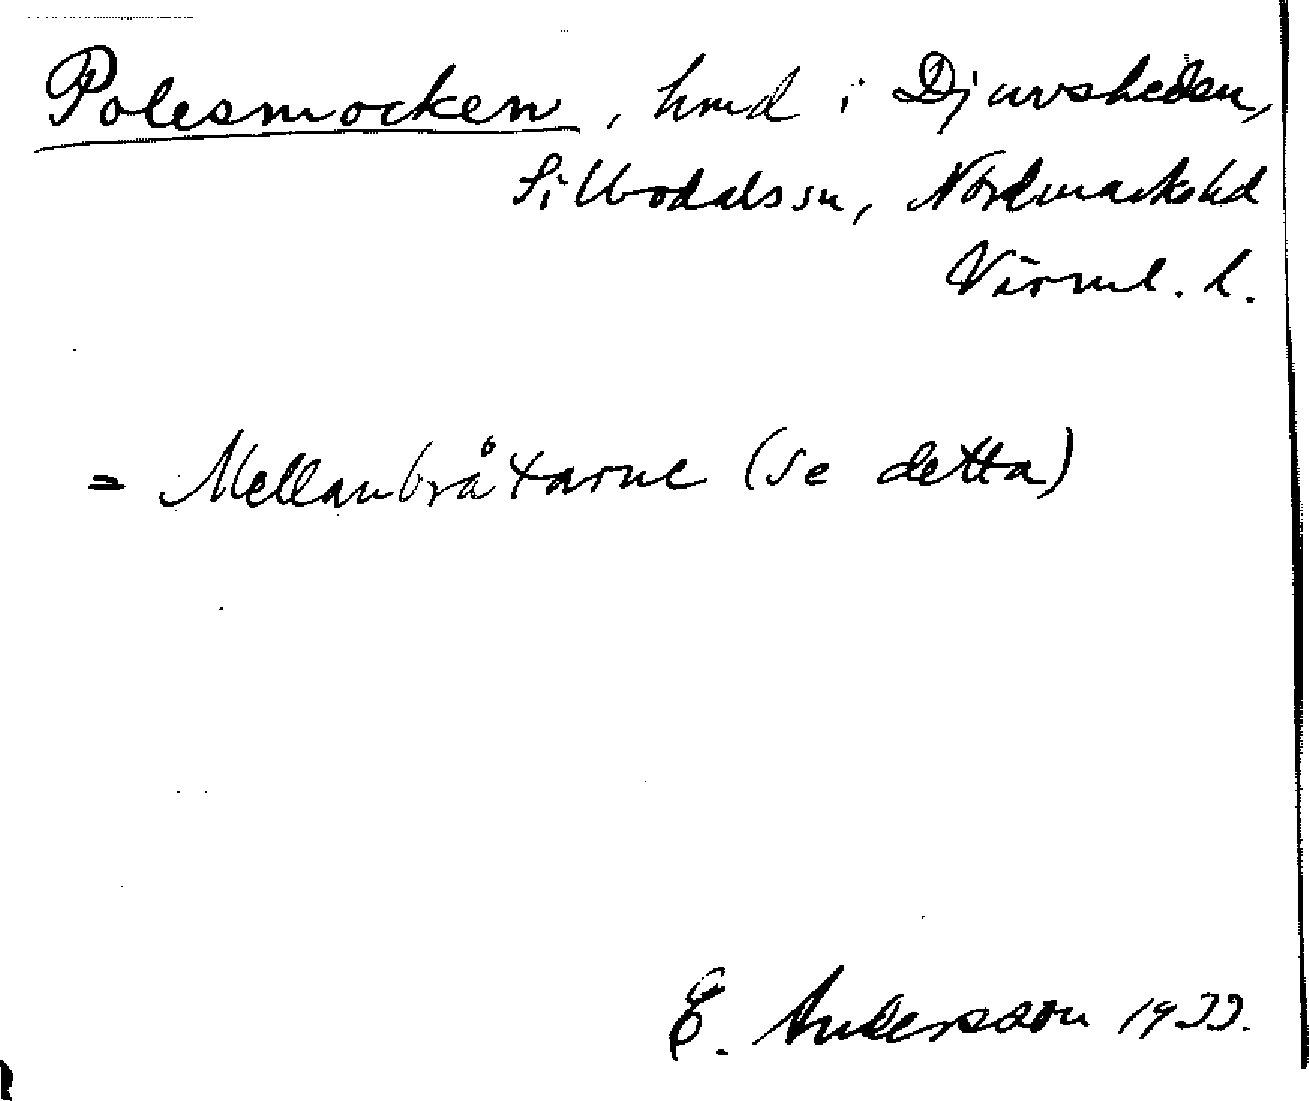 Polesmocken, hmd i Djuvsheden,
Silbodals sn, Nordmarks hd
Värml. l.
= Mellanbråtarne (se detta)
E. Andersson 1933.